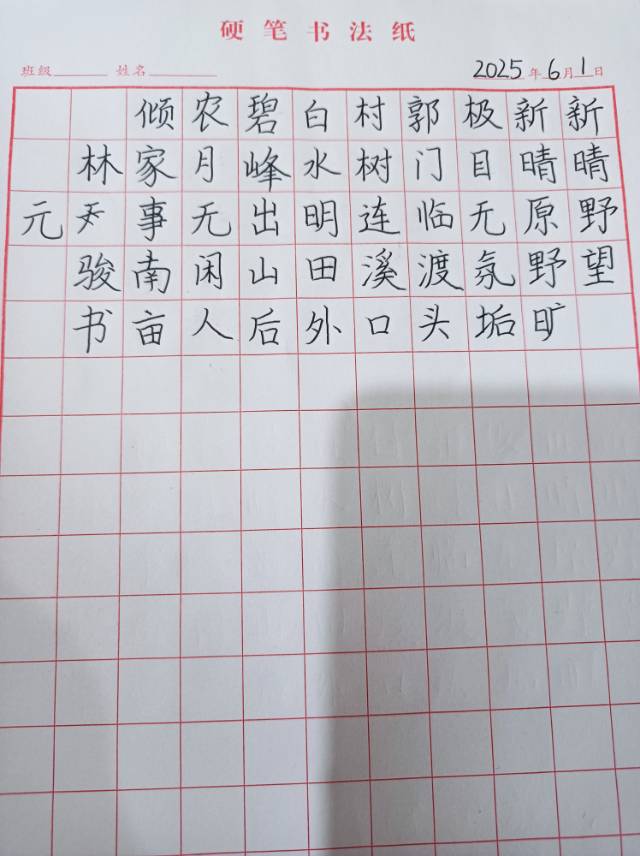 硬笔书法纸
班级 姓名 2025年6月1日
新晴野望
新晴原野旷
极目无氛垢
郭门临渡头
村树连溪口
白水明田外
碧峰出山后
农月无闲人
倾家事南亩
林骏书
元